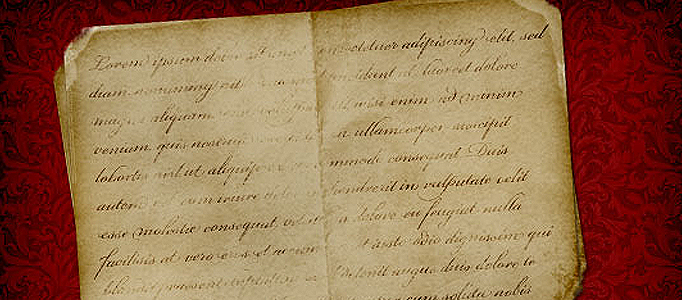 Lorem ipsum dolor sit amet consectetuer adipiscing elit, sed
diam nonummy nibh tincidunt ut laoreet dolore
magna aliquam erat ut wisi enim ad minim
veniam, quis nostrud ullamcorper suscipit
lobortis nisl ut aliquip ex commodo consequat. Duis
autem vel eum iriure dolor hendrerit in vulputate velit
esse molestie consequat, vel dolore eu feugiat nulla
facilisis at vero eros et accumsan iusto odio dignissim qui
blandit praesent luptatum delenit augue duis dolore te
cum soluta nobis